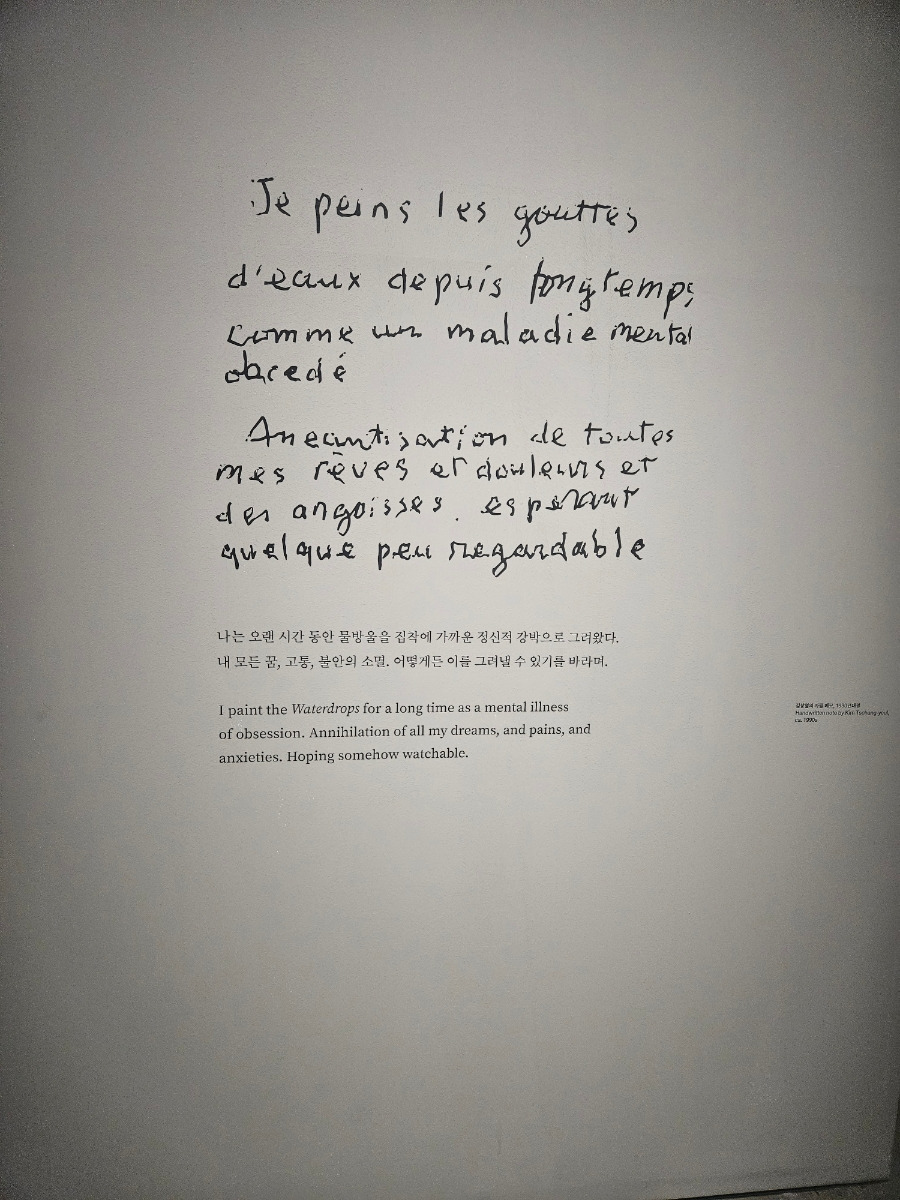 Je peins les gouttes
d'eaux depuis longtemps
comme un maladie mental
obcedé
Aneantisation de toutes
mes rêves et douleurs et
des angoisses. esperant
quelque peu regardable
나는 오랜 시간 동안 물방울을 집착에 가까운 정신적 강박으로 그려왔다.
내 모든 꿈, 고통, 불안의 소멸. 어떻게든 이를 그려낼 수 있기를 바라며.
I paint the Waterdrops for a long time as a mental illness
of obsession. Annihilation of all my dreams, and pains, and
anxieties. Hoping somehow watchable.
Handwritten note by Kim Tschang-yeul,
ca. 1990s